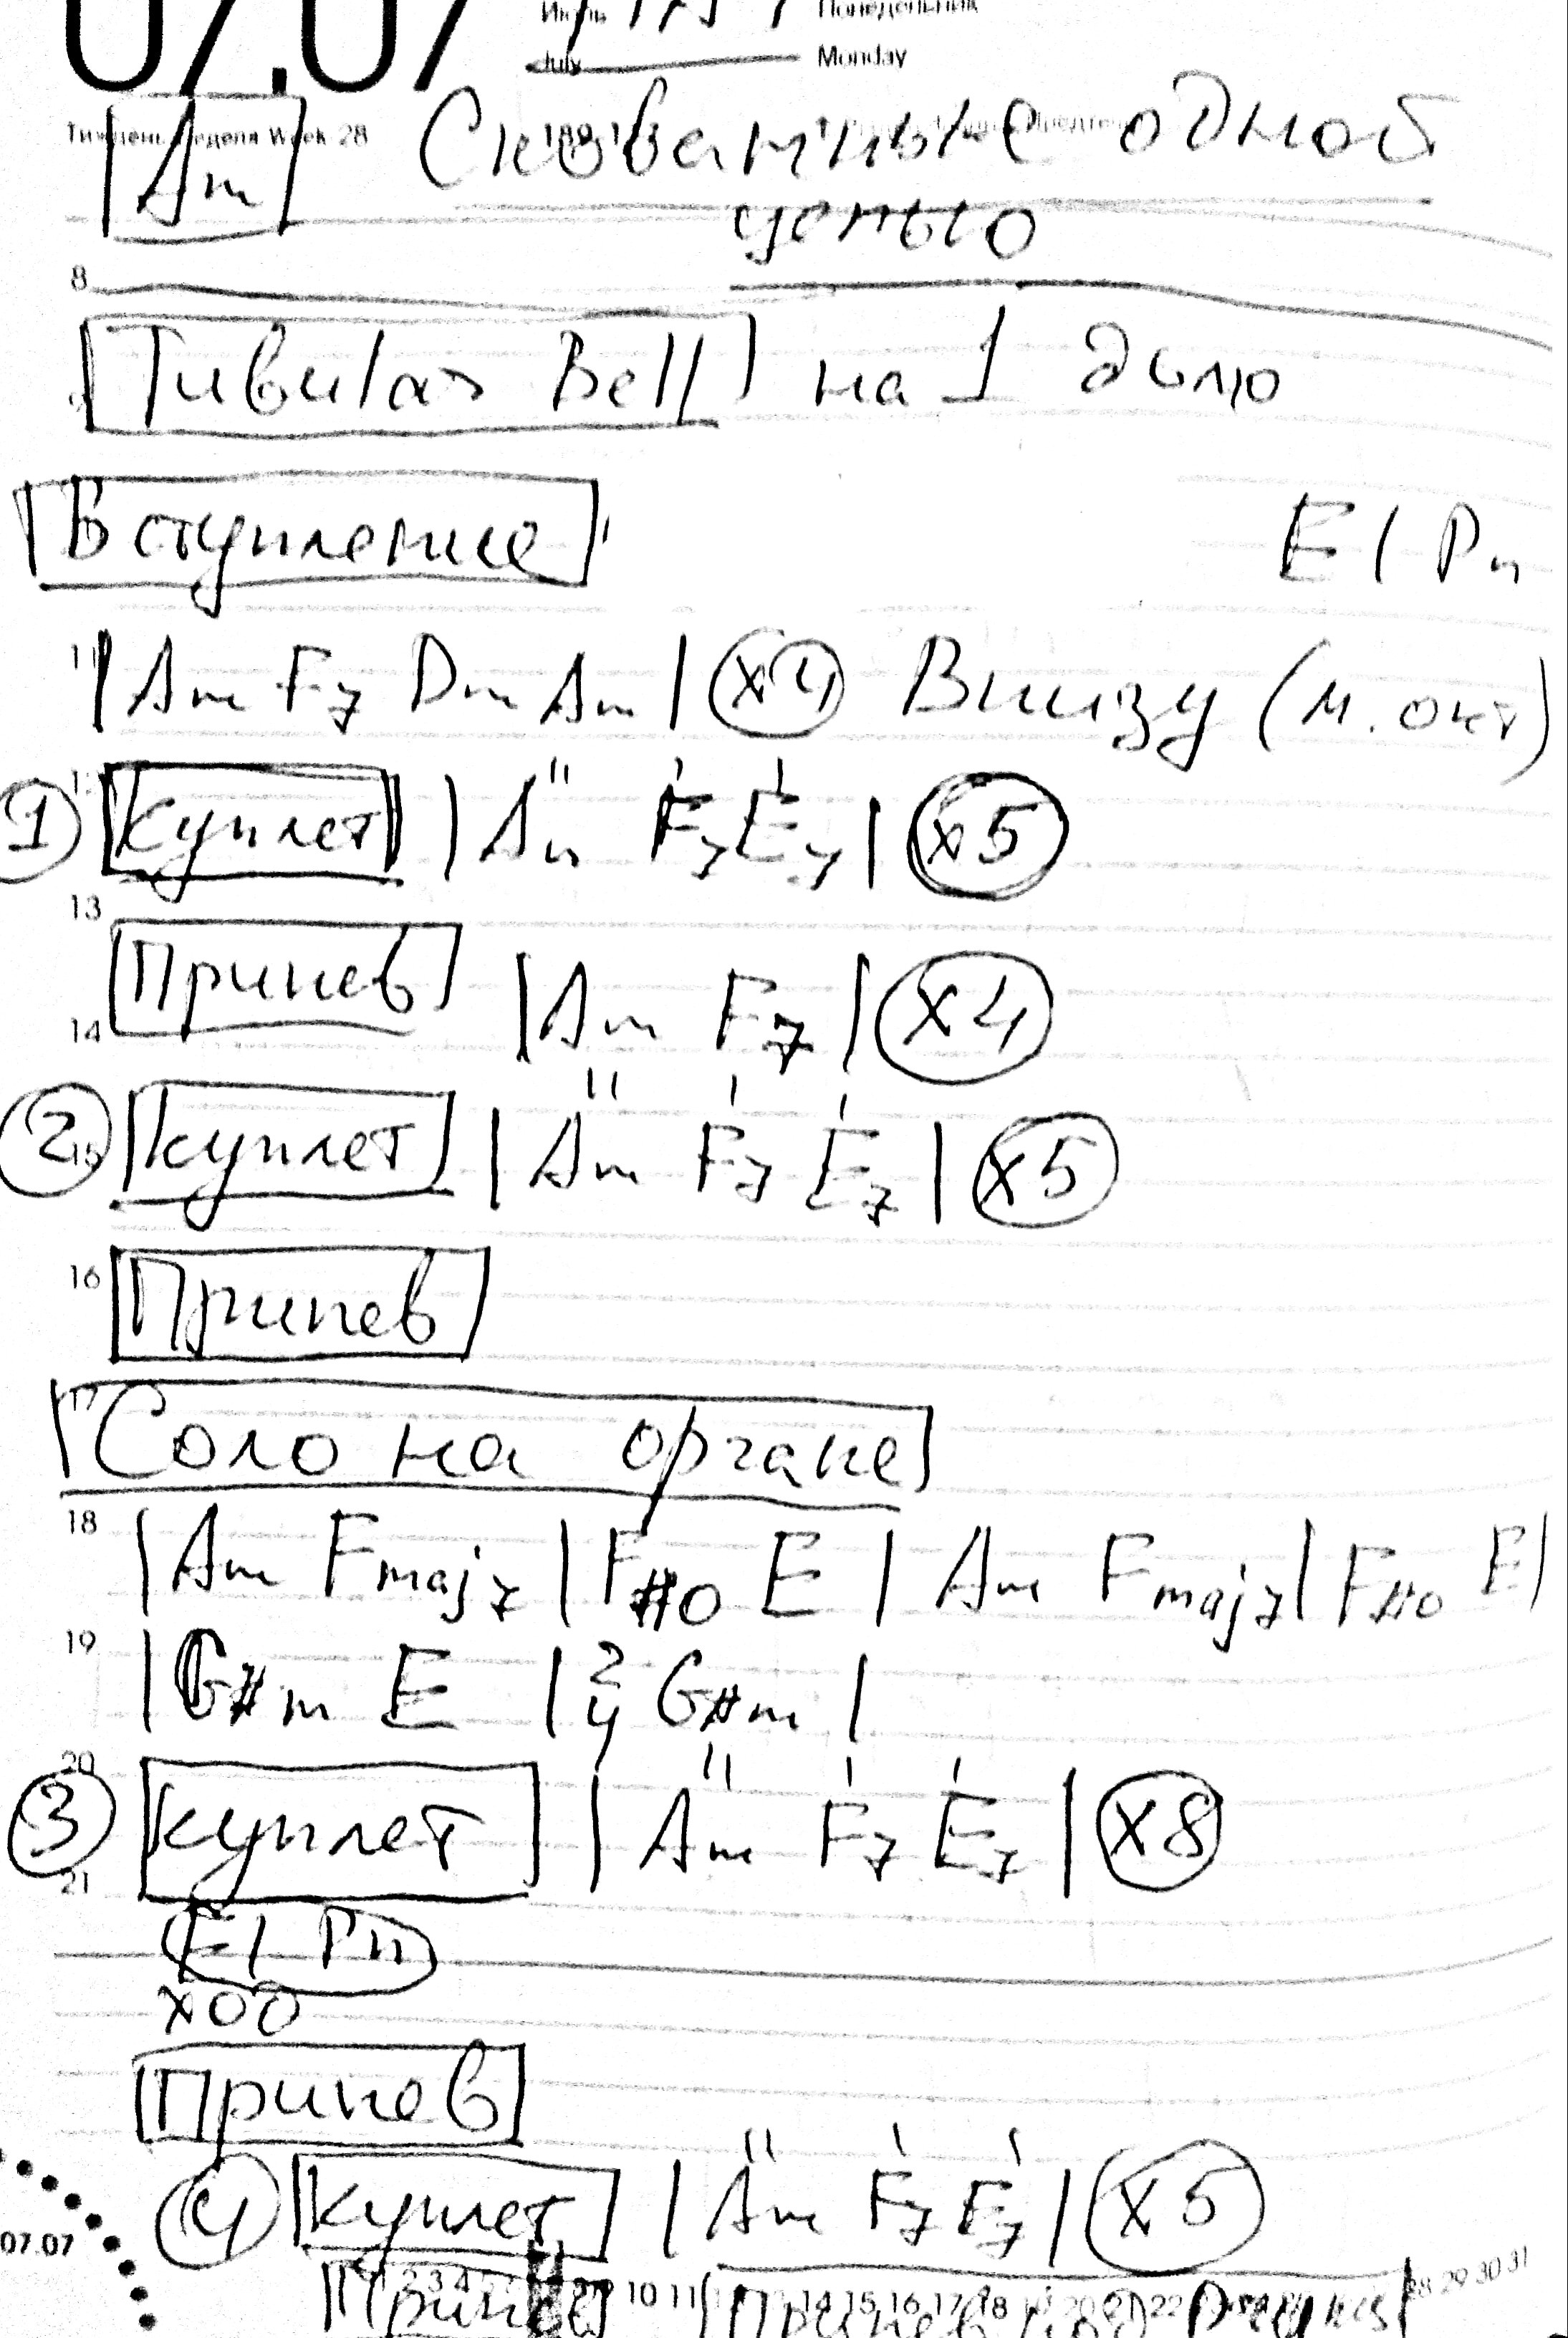 07.07 Июль Понедельник
July Monday
Тиждень Неделя Week 28
Am Скованные одной
цепью
8
Tubular Bell на 1 долю
Вступление El Pn
11 | Am F7 Dm Am | x4 Внизу (м. окт)
1 Куплет | Am F7 E7 | x5
13
Припев | Am F7 | x4
14
2 15 Куплет | Am F7 E7 | x5
16 Припев
17 Соло на органе
18 | Am Fmaj7 | F#o E | Am Fmaj7 | F#o E |
19 | G#m E | 2/4 G#m |
20
3 Куплет | Am F7 E7 | x8
21
El Pn
Припев
4 Куплет | Am F7 E7 | x5
07.07
Припев Припев под
2 3 4 10 11 14 15 16 17 18 20 21 22 28 29 30 31